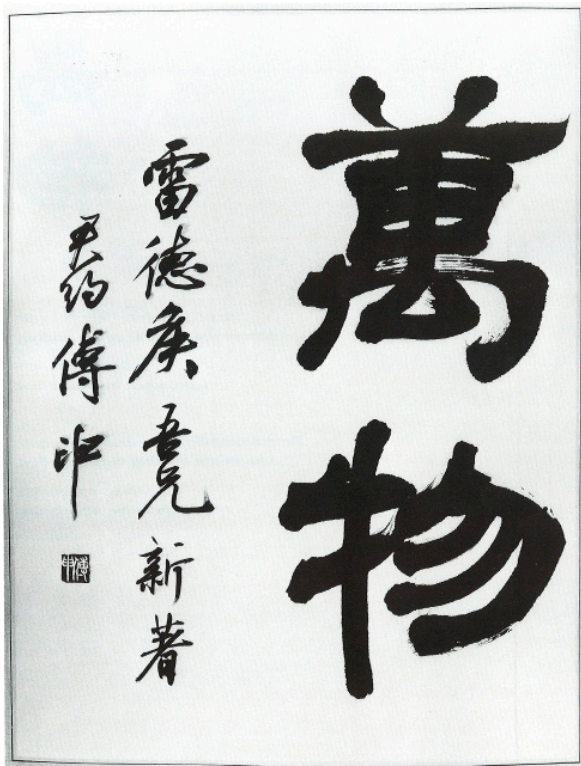 萬物
雷德侯吾兄新著
君約傅申
傅申